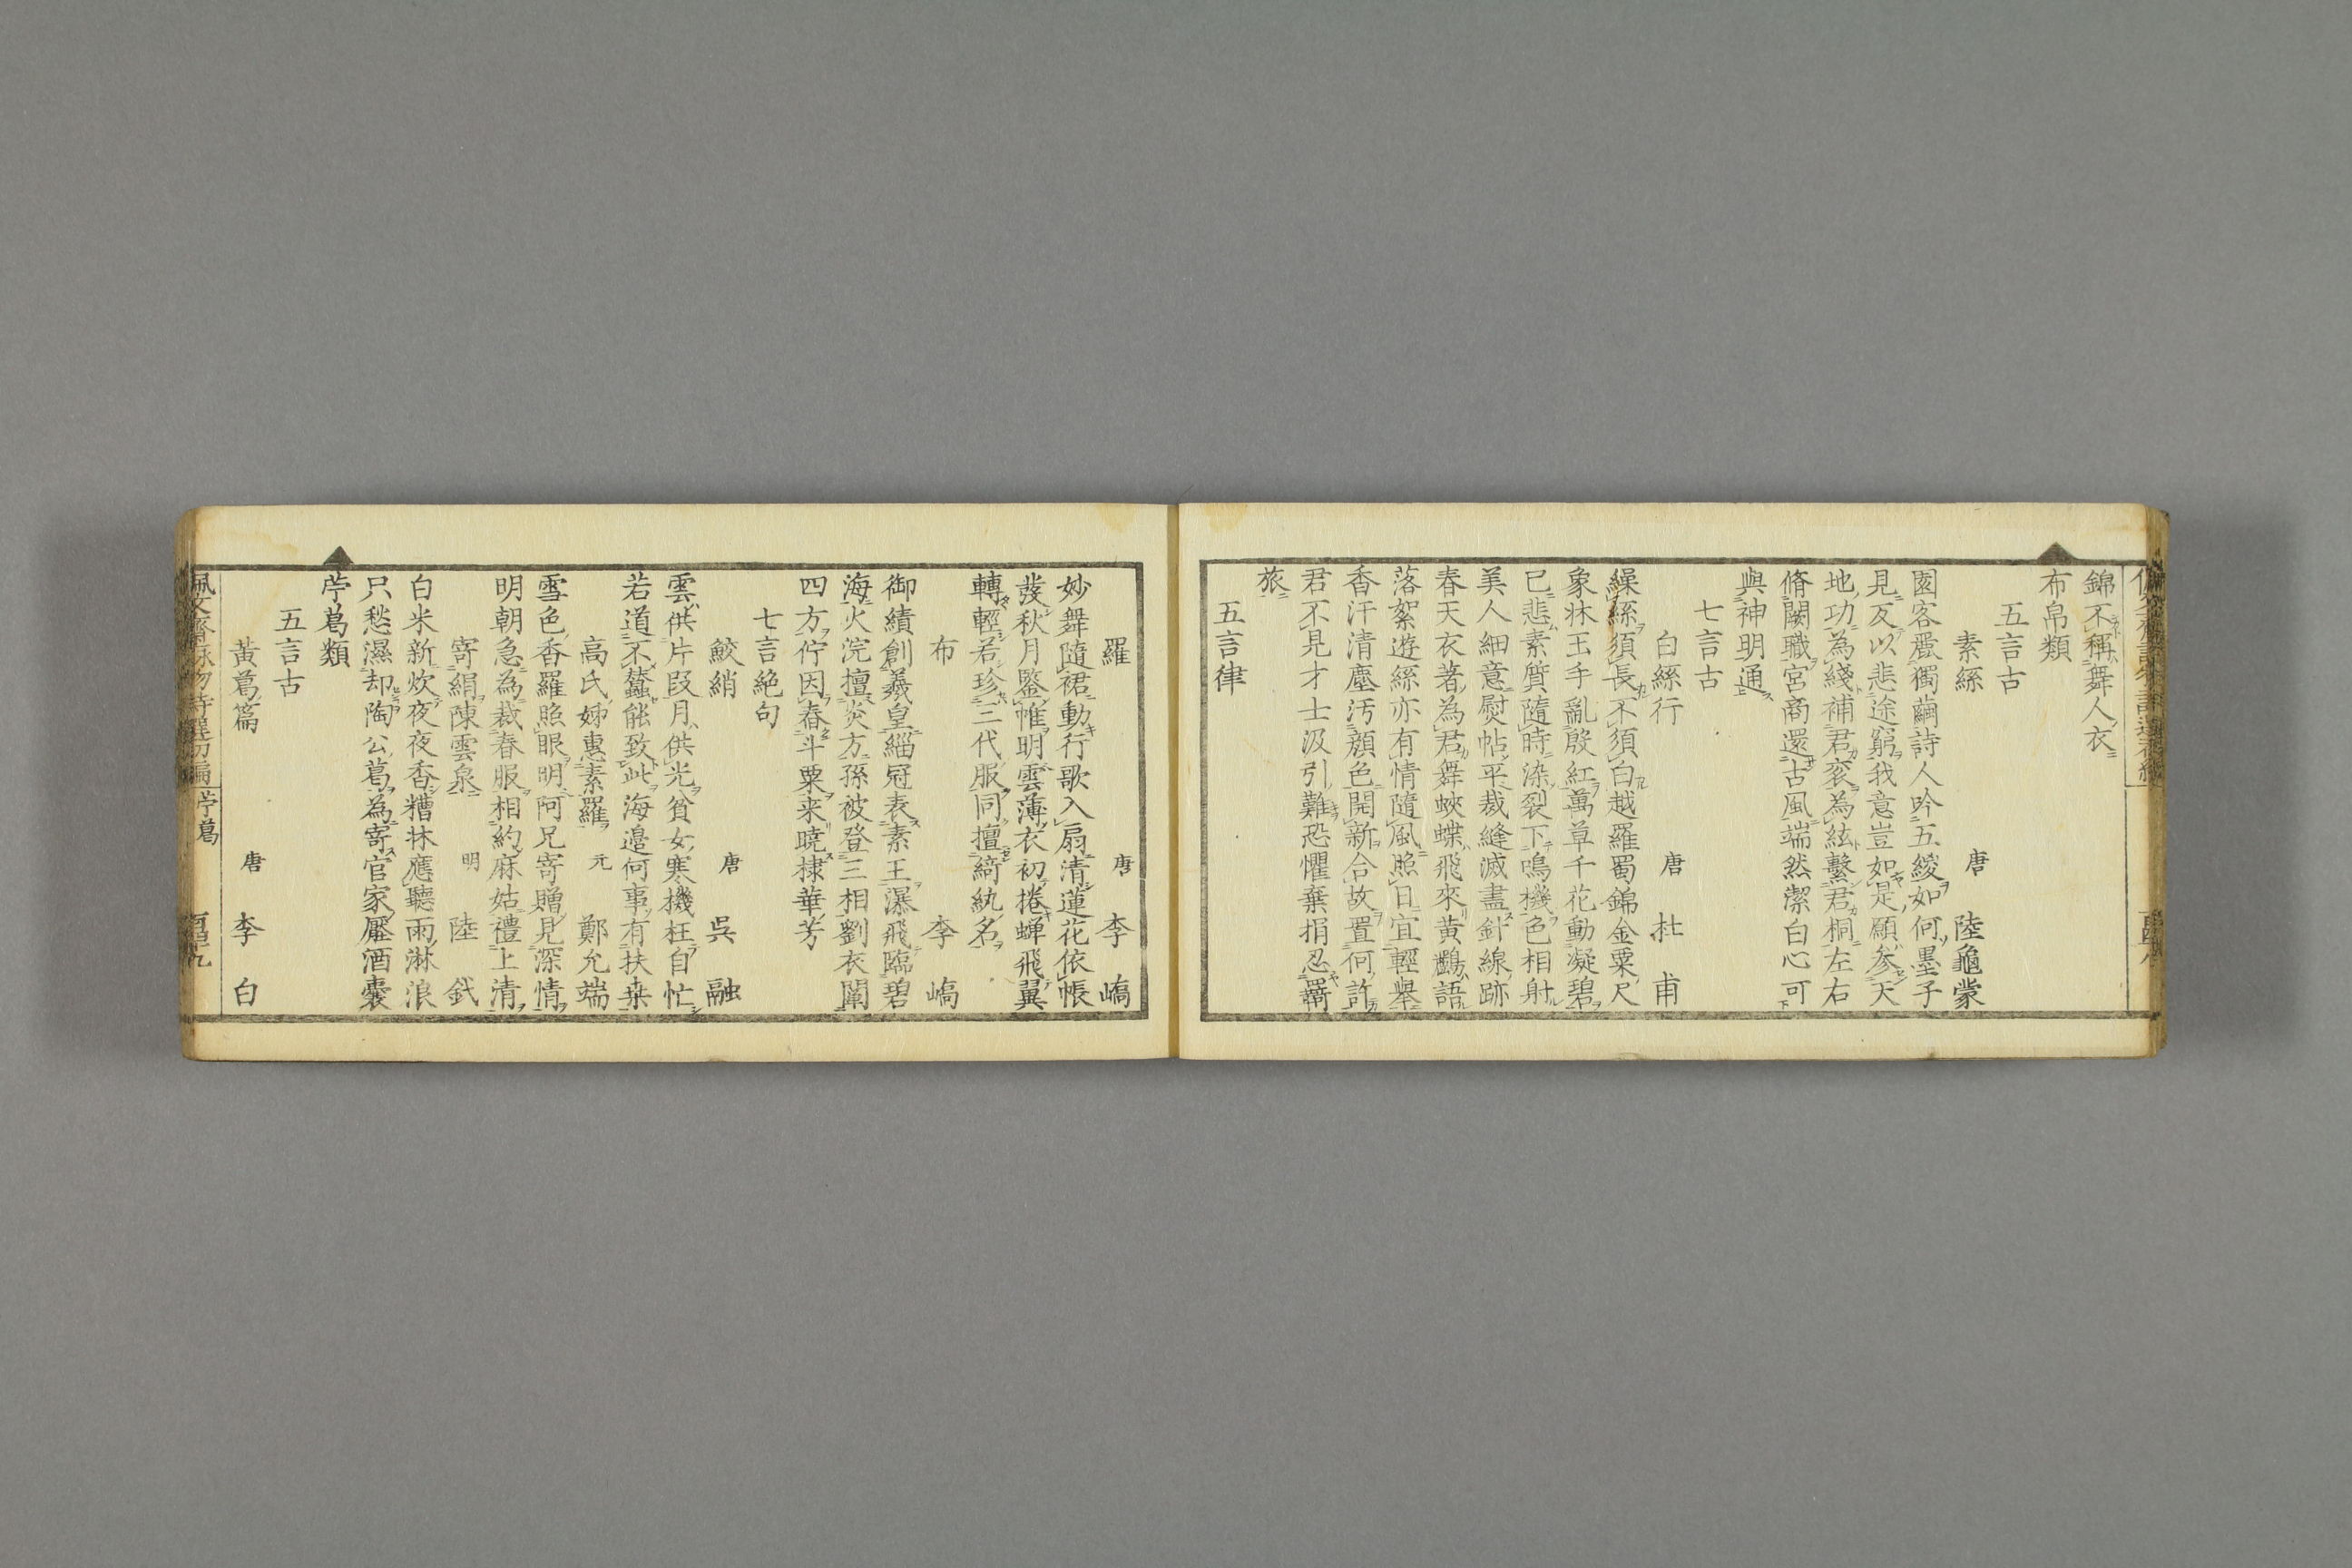 錦不稱舞人衣
布帛類
五言古
素絲 唐 陸龜蒙
園客麗獨繭詩人吟五緵如何墨子
見反以悲途窮我意豈如是願參天
地功為綫補君袞為絃繫君桐左右
脩闕職宮商還古風端然潔白心可
與神明通
七言古
白絲行 唐 杜甫
繰絲須長不須白越羅蜀錦金粟尺
象牀玉手亂殷紅萬草千花動凝碧
已悲素質隨時染裂下鳴機色相射
美人細意熨帖平裁縫滅盡針線跡
春天衣著為君舞蛺蝶飛來黃鸝語
落絮遊絲亦有情隨風照日宜輕舉
香汗清塵汚顏色開新合故置何許
君不見才士汲引難恐懼棄捐忍羇
旅
五言律
羅 唐 李嶠
妙舞隨裙動行歌入扇清蓮花依帳
發秋月鑒帷明雲薄衣初捲蟬飛翼
轉輕若珍三代服同擅綺紈名
布 李嶠
御績創羲皇緇冠表素王瀑飛臨碧
海火浣擅炎方孫被登三相劉衣闡
四方佇因舂斗粟来曉棣華芳
七言絶句
鮫綃 唐 吳融
雲供片段月供光貧女寒機枉自忙
若道不蠶能致此海邉何事有扶桒
高氏姊惠素羅 元 鄭允端
雪色香羅照眼明阿兄寄贈見深情
明朝急為裁春服相約麻姑禮上清
寄絹陳雲泉 明 陸釴
白米新炊夜夜香糟牀應聽雨淋浪
只愁濕却陶公葛為寄官家壓酒囊
苧葛類
五言古
黃葛篇 唐 李白
佩文齋詠物詩選初編 苧葛